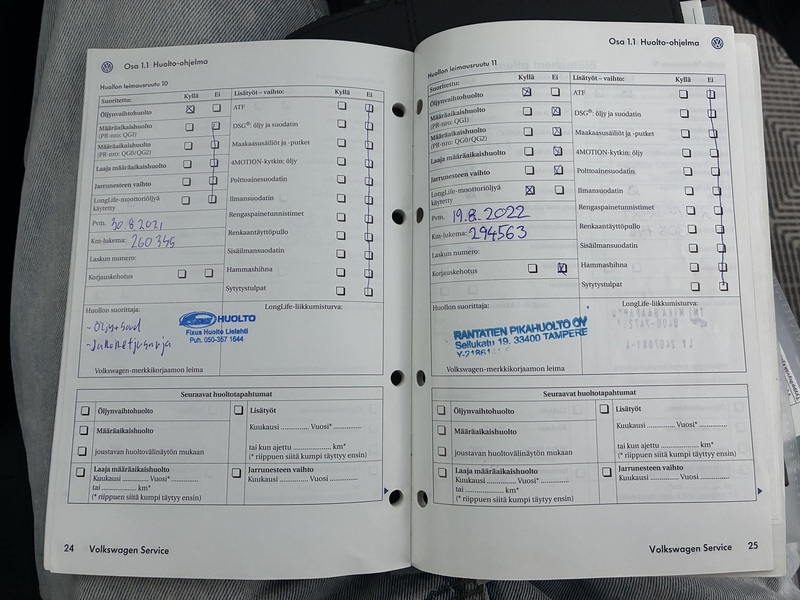 Osa 1.1 Huolto-ohjelma
Huollon leimausruutu 10
Suoritettu: Kyllä Ei
Öljynvaihtohuolto
Määräaikaishuolto
(PR-nro: QG1)
Määräaikaishuolto
(PR-nro: QG0/QG2)
Laaja määräaikaishuolto
Jarrunesteen vaihto
LongLife-moottoriöljyä
käytetty
Pvm. 30.8.2021
Km-lukema: 260345
Laskun numero:
Korjauskehotus
Lisätyöt – vaihto: Kyllä Ei
ATF
DSG®: öljy ja suodatin
Maakaasusäiliöt ja -putket
4MOTION-kytkin: öljy
Polttoainesuodatin
Ilmansuodatin
Rengaspainetunnistimet
Renkaantäyttöpullo
Sisäilmansuodatin
Hammashihna
Sytytystulpat
Huollon suorittaja:
LongLife-liikkumisturva:
HUOLTO
Fixus Huolto Lielahti
Puh. 050-357 1644
Volkswagen-merkkikorjaamon leima
Seuraavat huoltotapahtumat
Öljynvaihtohuolto
Määräaikaishuolto
joustavan huoltovälinäytön mukaan
Laaja määräaikaishuolto
Kuukausi .............. Vuosi* ..............
tai .............. km*
(* riippuen siitä kumpi täytyy ensin)
Lisätyöt
Kuukausi .............. Vuosi* ..............
tai kun ajettu .............. km*
(* riippuen siitä kumpi täytyy ensin)
Jarrunesteen vaihto
Kuukausi .............. Vuosi ..............
24 Volkswagen Service
Osa 1.1 Huolto-ohjelma
Huollon leimausruutu 11
Suoritettu: Kyllä Ei
Öljynvaihtohuolto
Määräaikaishuolto
(PR-nro: QG1)
Määräaikaishuolto
(PR-nro: QG0/QG2)
Laaja määräaikaishuolto
Jarrunesteen vaihto
LongLife-moottoriöljyä
käytetty
Pvm. 19.8.2022
Km-lukema: 294563
Laskun numero:
Korjauskehotus
Lisätyöt – vaihto: Kyllä Ei
ATF
DSG®: öljy ja suodatin
Maakaasusäiliöt ja -putket
4MOTION-kytkin: öljy
Polttoainesuodatin
Ilmansuodatin
Rengaspainetunnistimet
Renkaantäyttöpullo
Sisäilmansuodatin
Hammashihna
Sytytystulpat
Huollon suorittaja:
LongLife-liikkumisturva:
RANTATIEN PIKAHUOLTO OY
Sellukatu 19, 33400 TAMPERE
Volkswagen-merkkikorjaamon leima
Seuraavat huoltotapahtumat
Öljynvaihtohuolto
Määräaikaishuolto
joustavan huoltovälinäytön mukaan
Laaja määräaikaishuolto
Kuukausi .............. Vuosi* ..............
tai .............. km*
(* riippuen siitä kumpi täytyy ensin)
Lisätyöt
Kuukausi .............. Vuosi* ..............
tai kun ajettu .............. km*
(* riippuen siitä kumpi täytyy ensin)
Jarrunesteen vaihto
Kuukausi .............. Vuosi ..............
Volkswagen Service 25